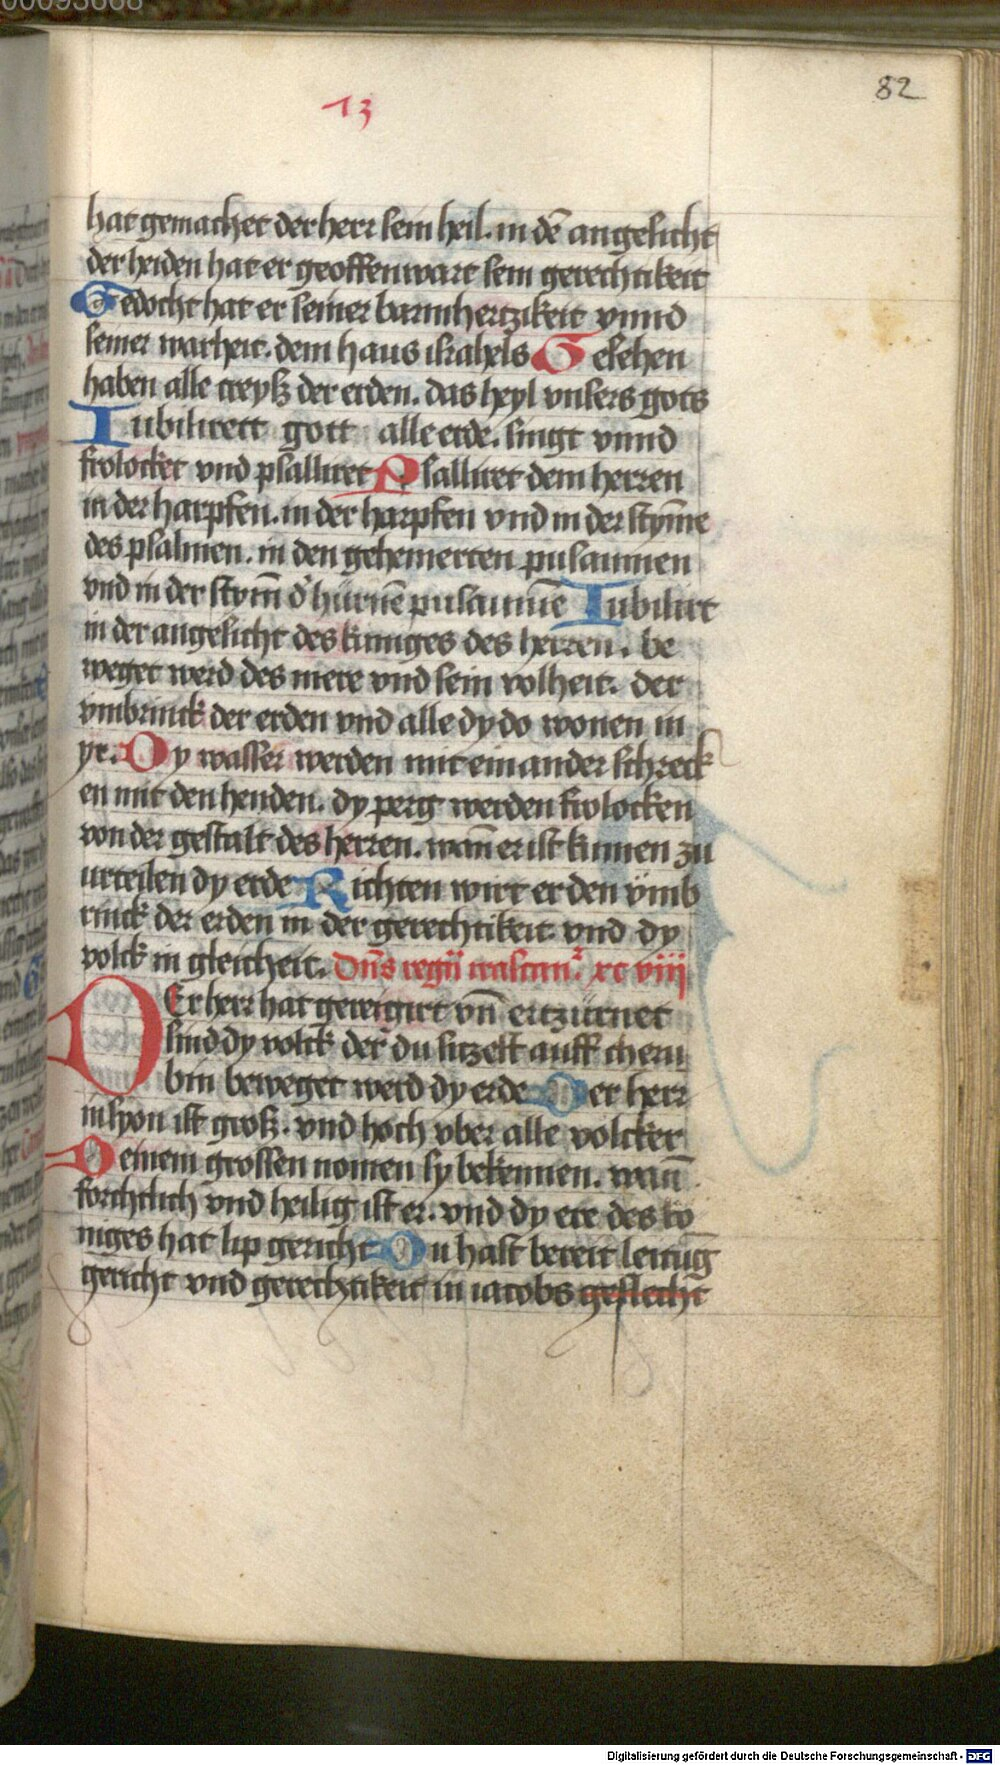 00093668
73
82
hat gemachet der herr sein heil. in dē angesicht
der heiden hat er geoffenwart sein gerechtikeit
Gedocht hat er seiner barmhertzikeit vnnd
seiner warheit. dem haus israhels Gesehen
haben alle creyß der erden. das heyl vnsers gots
Iubilirett gott alle erde. singt vnnd
frolocket vnd psalliret Psalliret dem herren
in der harpfen. in der harpfen vnd in der stym̄e
des psalmen. in den gehemerten pusaumen
vnd in der stym̄ d' hürnē pusaumē Iubilirt
in der angesicht des kuniges des herren. be
weget werd des mere vnd sein volheit. der
vmbrinck der erden vnd alle dy do wonen in
yr. Dy wasser werden mit einander schreck
en mit den henden. dy perg werden frolocken
von der gestalt des herren. wan̄ er ist kumen zu
urteilen dy erde Richten wirt er den vmb
rinck der erden in der gerechtikeit vnd dy
volck in gleicheit. Dn̄s regn̄ irascant² xc viij
DEr herr hat gereignirt vn̄ ertzürnet
sind dy volck der du sitzest auff cheru
bin beweget werd dy erde Der herr
in syon ist groß. vnd hoch vber alle volcker
Deinem grossen nomen sy bekennen. wan̄
forchtlich vnd heilig ist er. vnd dy ere des ko
niges hat lip gericht Du hast bereit leitūg
gericht vnd gerechtikeit in iacobs geslecht
Digitalisierung gefördert durch die Deutsche Forschungsgemeinschaft - DFG